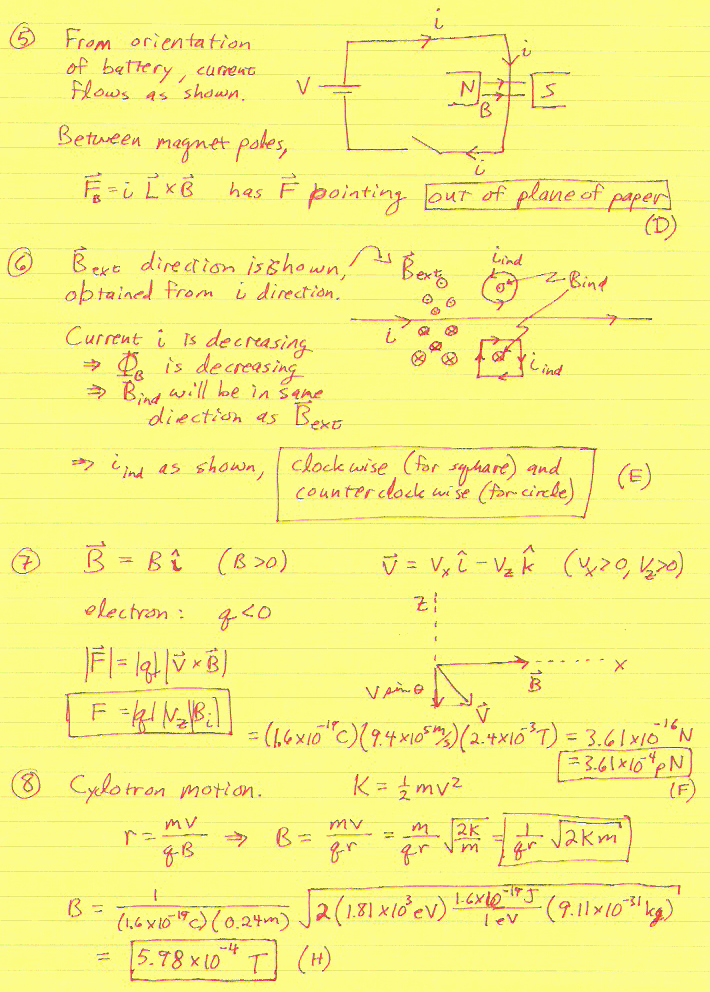 ⑤ From orientation
of battery, current
flows as shown.
i
i
V
N
B
S
i
Between magnet poles,
F⃗_B = i L⃗ × B⃗ has F⃗ pointing out of plane of paper
(D)
⑥ B⃗ext direction is shown,
obtained from i direction.
B⃗ext
i_ind
B_ind
i
i_ind
Current i is decreasing
⇒ Φ_B is decreasing
⇒ B⃗ind will be in same
direction as B⃗ext
⇒ i_ind as shown, clockwise (for square) and
counterclockwise (for circle)
(E)
⑦ B⃗ = B î (B>0) v⃗ = Vx î - Vz k̂ (Vx>0, Vz>0)
electron: q<0
z
x
B⃗
V sin θ
V⃗
|F⃗| = |q| |v⃗ × B⃗|
F = |q| |Vz| |Bi|
= (1.6×10⁻¹⁹ C)(9.4×10⁵ m/s)(2.4×10⁻³ T) = 3.61×10⁻¹⁶ N
= 3.61×10⁻⁴ pN
(F)
⑧ Cyclotron motion. K = ½ mv²
r = mv/qB ⇒ B = mv/qr = m/qr √(2K/m) = 1/qr √(2Km)
B = 1/((1.6×10⁻¹⁹ C)(0.24m)) √(2(1.81×10³ eV) (1.6×10⁻¹⁹ J/1 eV) (9.11×10⁻³¹ kg))
= 5.98×10⁻⁴ T (H)